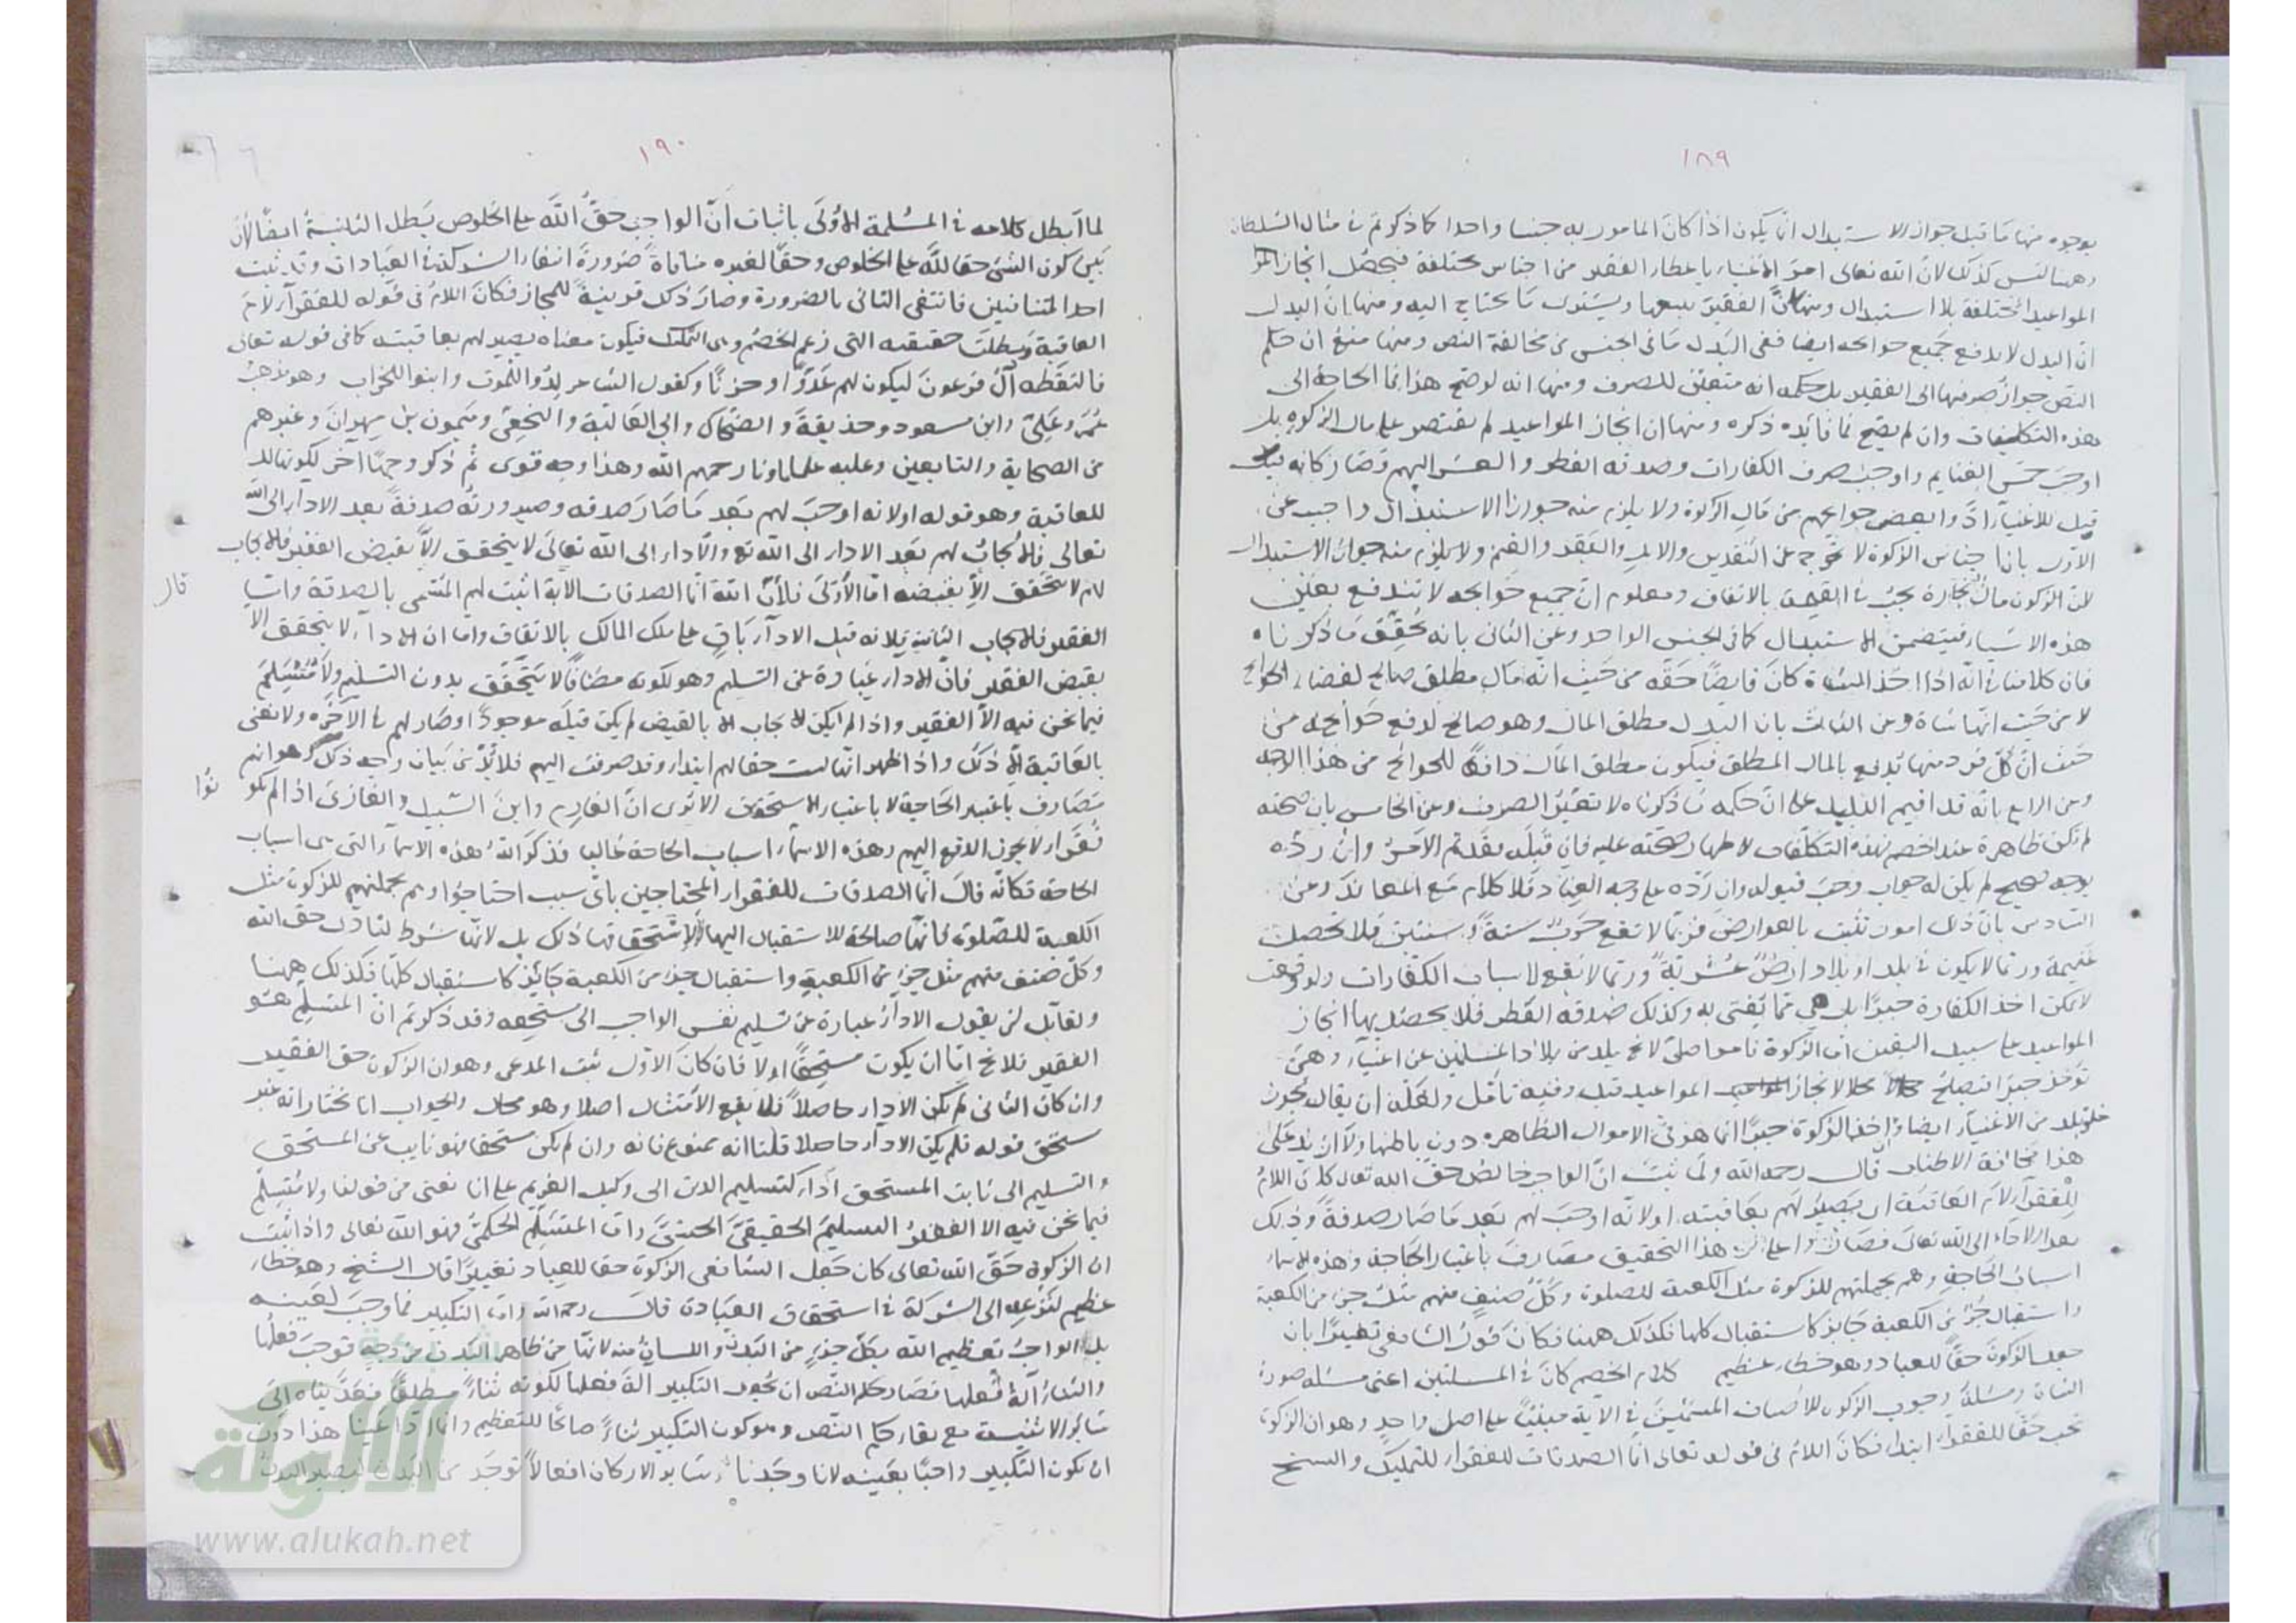 ١٨٩
بوجوه منها ما قيل جواز الاستبدال انما يكون اذا كان المامور به جنسا واحدا كما ذكرتم في مثال السلطان
وههنا ليس كذلك لان الله تعالى امر الاغنياء باعطاء الفقير من اجناس مختلفة فيحصل انجاز
المواعيد المختلفة بلا استبدال ومنها ان الفقير يبيعها ويشتري ما يحتاج اليه ومنها ان البدل
ان البدل لا يدفع جميع حوائجه ايضا ففي البدل ما في الجنس من مخالفة النص ومنها منع ان حكم
النص جواز صرفها الى الفقير بل حكمه انه متعين للصرف ومنها انه لو صح هذا فما الحاجة الى
هذه التكلفات وان لم يصح فما فائدة ذكره ومنها ان انجاز المواعيد لم يقتصر على مال الزكوة بل
اوجب خمس الغنايم واوجب صرف الكفارات وصدقة الفطر والعشر اليهم فصار كانه
قيل للاغنياء ادوا بعض حوائجهم من مال الزكوة ولا يلزم منه جواز الاستبدال واجيب عن
الاول بان اجناس الزكوة لا تخرج عن النقدين والابل والبقر والغنم ولا يلزم منه جواز الاستبدال
لان الزكوة مال تجارة يجب في القيمة بالاتفاق ومعلوم ان جميع حوائجه لا تندفع بعين
هذه الاشياء فيتضمن الاستبدال كما في الجنس الواحد وعن الثاني بانه تحقق ما ذكرناه
فان كلامنا في انه اذا اخذ الشاة كان قابضا حقه من حيث انه مال مطلق صالح لقضاء الحوائج
لا من حيث انها شاة وعن الثالث بان البدل مطلق المال وهو صالح لدفع حوائجه من
حيث ان كل فرد منها يدفع بالمال المطلق فيكون مطلق المال دافعا للحوائج من هذا الوجه
وعن الرابع بانه قد اقيم الدليل على ان حكمه ما ذكرناه لا تعين الصرف وعن الخامس بان صحته
لم تكن ظاهرة عند الخصم فهذه التكلفات لاظهار صحته عليه فان قبله فقد تم الامر وان رده
بوجه صحيح لم يكن له جواب وجب قبوله وان رده على وجه العناد فلا كلام مع المعاند وعن
السادس بان ذلك امور تثبت بالعوارض فربما لا تقع حرب سنة او سنتين فلا تحصل
غنيمة وربما لا يكون في بلد او بلاد ارض عشرية وربما لا يقع لاسباب الكفارات ولو وقعت
لا يمكن اخذ الكفارة جبرا بل هي مما يفتى به وكذلك صدقة الفطر فلا يحصل بها انجاز
المواعيد على سبيل اليقين اما الزكوة فامر اصلي لا يخ بلد من بلاد المسلمين عن اغنياء وهي
تؤخذ جبرا فتصلح محلا لانجاز المواعيد قيل وفيه تامل ولعله ان يقال يجوز
خلو بلد من الاغنياء ايضا واخذ الزكوة جبرا انما هو في الاموال الظاهرة دون باطنها ولا ان يدعى
هذا مخافة الاطناب قال رحمه الله ولما ثبت ان الواجب خالص حق الله تعالى كان اللام
للفقراء لام العاقبة اي يصير لهم بعاقبته اولانه اوجب لهم بعد ما صار صدقة وذلك
بعد الاداء الى الله تعالى فصاروا على هذا التحقيق مصارف باعتبار الحاجة وهذه الاسماء
اسباب الحاجة وهم بجملتهم للزكوة مثل الكعبة للصلوة وكل صنف منهم مثل جزء من الكعبة
واستقبال جزء من الكعبة جايز كاستقبال كلها فكذلك ههنا فكان قول الشافعي تغييرا بان
جعل الزكوة حقا للعباد وهو خطاء عظيم كلام الخصم كان في المسئلتين اعني مسئلة صورة
الشاة ومسئلة وجوب الزكوة للاصناف المسمين في الآية مبنيا على اصل واحد وهو ان الزكوة
تجب حقا للفقراء ابتداء فكان اللام في قوله تعالى انما الصدقات للفقراء للتمليك والشيخ
١٩٠
لما ابطل كلامه في المسئلة الاولى باثبات ان الواجب حق الله على الخلوص يبطل الثانية ايضا لان
بين كون الشئ حقا لله على الخلوص وحقا لغيره منافاة ضرورة انتفاء الشركة في العبادات وقد ثبت
احد المتنافيين فانتفى الثاني بالضرورة وصار ذلك قرينة للمجاز فكان اللام في قوله للفقراء لام
العاقبة وبطلت حقيقته التي زعم الخصم وهي التمليك فيكون معناه يصير لهم بعاقبته كما في قوله تعالى
فالتقطه آل فرعون ليكون لهم عدوا وحزنا وكقول الشاعر لدوا للموت وابنوا للخراب وهو مذهب
عمر وعلي وابن مسعود وحذيفة والضحاك وابي العالية والنخعي وميمون بن مهران وغيرهم
من الصحابة والتابعين وعليه علماؤنا رحمهم الله وهذا وجه قوى ثم ذكر وجها آخر لكونها
للعاقبة وهو قوله اولانه اوجب لهم بعد ما صار صدقة وصيرورته صدقة بعد الاداء الى الله
تعالى فالايجاب لهم بعد الاداء الى الله تع والاداء الى الله تعالى لا يتحقق الا بقبض الفقير فالايجاب
لهم لا يتحقق الا بقبضه اما الاولى فلان الله انما الصدقات الآية اثبت لهم المسمى بالصدقة واما
قال
الفقير فالايجاب الثانية فلانه قبل الاداء باق على ملك المالك بالاتفاق واما ان الاداء لا يتحقق الا
بقبض الفقير فان الاداء عبارة عن التسليم وهو لكونه مضافا لا يتحقق بدون التسليم ولا متسلم
فيما نحن فيه الا الفقير واذا لم يكن الايجاب الا بالقبض لم يكن قبله موجودا وصار لهم في الآخرة ولا نعني
بالعاقبة الا ذلك واذا ظهر انها ليست حقا لهم ابتداء وقد صرفت اليهم فلا بد من بيان وجه ذلك وهو انهم
مصارف باعتبار الحاجة لا باعتبار الاستحقاق الا ترى ان الغارم وابن السبيل والغازي اذا لم يكو
نوا
فقراء لا يجوز الدفع اليهم وهذه الاسماء اسباب الحاجة غالبا فذكر الله هذه الاسماء التي هي اسباب
الحاجة فكانه قال انما الصدقات للفقراء المحتاجين باي سبب احتاجوا وهم بجملتهم للزكوة مثل
الكعبة للصلوة فانها صالحة للاستقبال اليها لا تستحقاقها ذلك بل لانها شرط لتادي حق الله
وكل صنف منهم مثل جزء من الكعبة واستقبال جزء من الكعبة جايز كاستقبال كلها فكذلك ههنا
ولقايل ان يقول الاداء عبارة عن تسليم نفس الواجب الى مستحقه وقد ذكرتم ان المتسلم هو
الفقير فلا يخ اما ان يكون مستحقا اولا فان كان الاول ثبت المدعى وهو ان الزكوة حق الفقير
وان كان الثاني لم يكن الاداء حاصلا فلا يقع الامتثال اصلا وهو محال والجواب انا نختار انه غير
مستحق قوله فلم يكن الاداء حاصلا قلنا انه ممنوع فانه وان لم يكن مستحقا فهو نايب عن المستحق
والتسليم الى نايب المستحق اداء كتسليم الدين الى وكيل الغريم على انا نعني من قولنا ولا متسلم
فيما نحن فيه الا الفقير التسليم الحقيقي الحسي واما المتسلم الحكمي فهو الله تعالى واذا ثبت
ان الزكوة حق الله تعالى كان جعل الشافعي الزكوة حقا للعباد تغييرا قال الشيخ وهو خطاء
عظيم لنزعه الى الشركة في استحقاق العبادة قال رحمه الله واما التكبير فما وجب لعينه
بل الواجب تعظيم الله بكل جزء من البدن واللسان منه لانها من ظاهر البدن من وجه فوجب فعلها
والثناء آلة فعلها فصار حكم النص ان يجعل التكبير آلة فعلها لكونه ثناء مطلقا فعديناه الى
سائر الاثنية مع بقاء حكم النص وهو كون التكبير ثناء صالحا للتعظيم وانما ادعينا هذا دون
ان يكون التكبير واجبا بعينه لانا وجدنا سائر الاركان افعالا توجد من البدن ليصير البدن
الألوكة
www.alukah.net